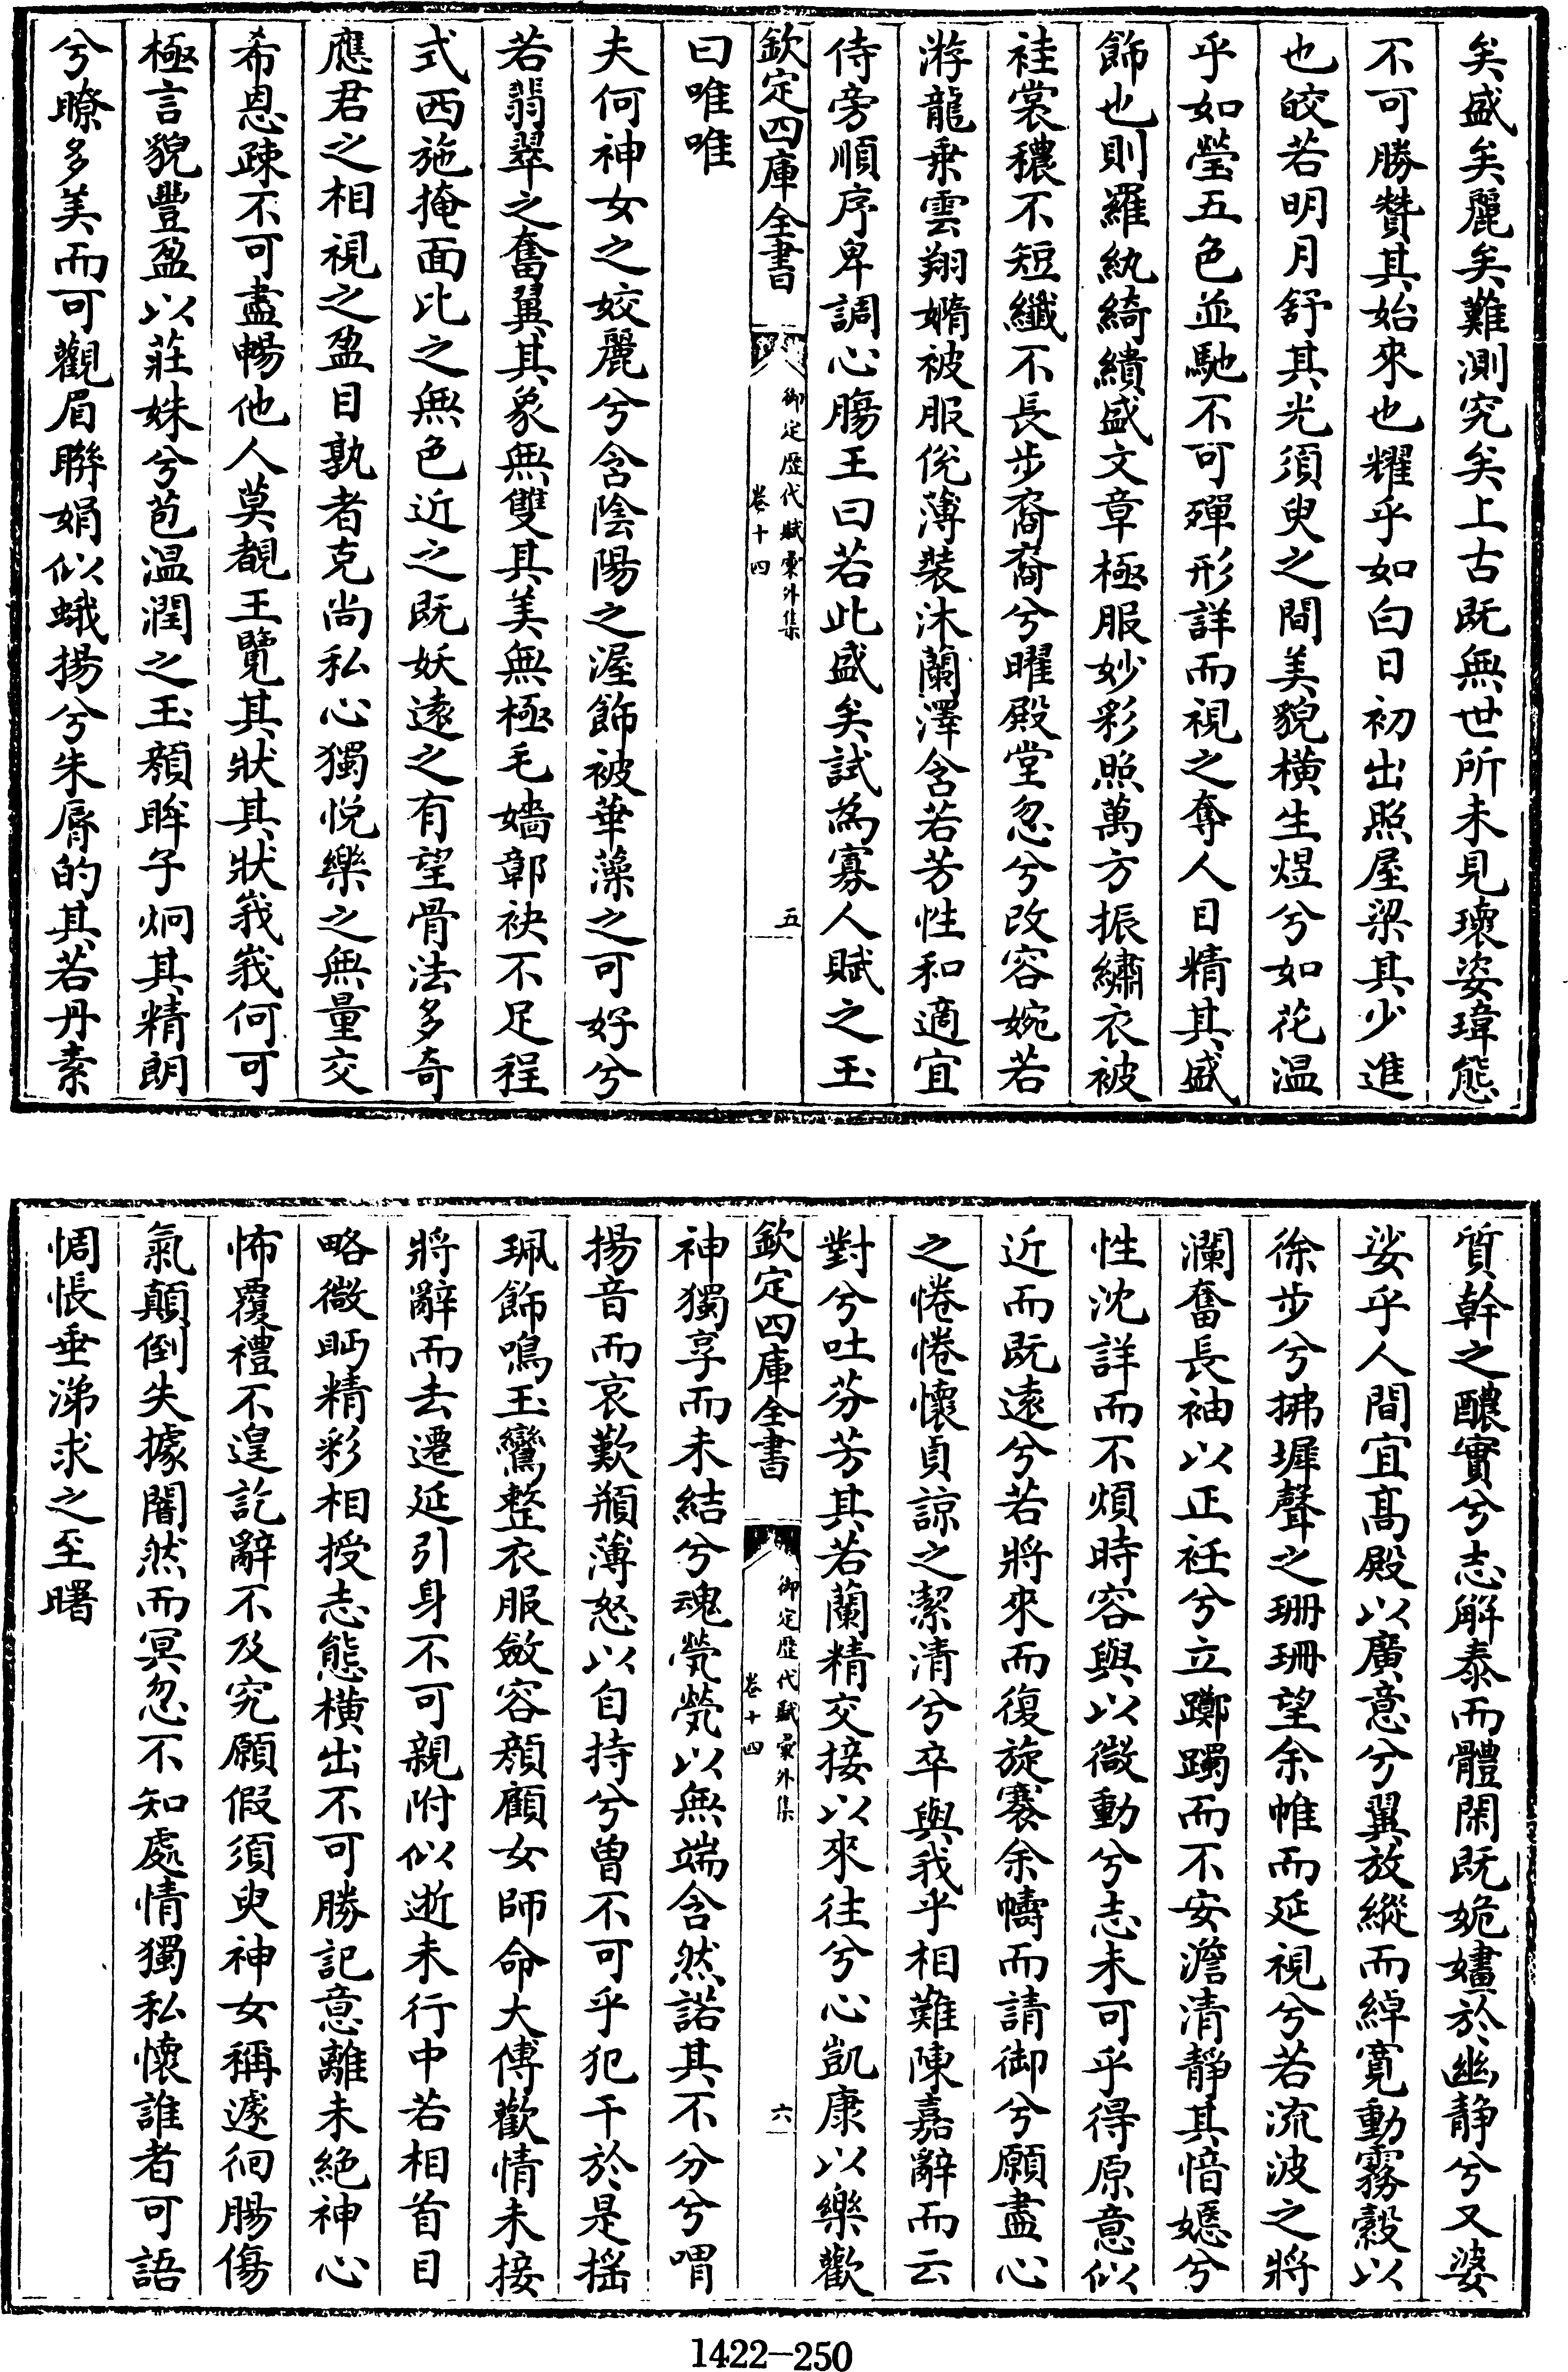 矣盛矣麗矣難測究矣上古既無世所未見瓌姿瑋態
不可勝贊其始來也耀乎如白日初出照屋梁其少進
也皎若明月舒其光須臾之間美貌橫生煜兮如花温
乎如瑩五色並馳不可殫形詳而視之奪人目精其盛
飾也則羅紈綺繢盛文章極服妙彩照萬方振繡衣被
袿裳穠不短纖不長步裔裔兮曜殿堂忽兮改容婉若
游龍乗雲翔嫷被服侻薄裝沐蘭澤含若芳性和適宜
侍旁順序卑調心膓王曰若此盛矣試為寡人賦之玉
欽定四庫全書
御定歴代賦彙外集
卷十四
五
曰唯唯
夫何神女之姣麗兮含陰陽之渥飾被華藻之可好兮
若翡翠之奮翼其象無雙其美無極毛嬙鄣袂不足程
式西施掩面比之無色近之既妖遠之有望骨法多奇
應君之相視之盈目孰者克尚私心獨悅樂之無量交
希恩疎不可盡暢他人莫覩王覽其狀其狀峩峩何可
極言貌豐盈以莊姝兮苞温潤之玉顔眸子炯其精朗
兮瞭多美而可觀眉聯娟似蛾揚兮朱脣的其若丹素
質幹之醲實兮志解泰而體閑既姽嫿於幽静兮又婆
娑乎人間宜髙殿以廣意兮翼放縱而綽寛動霧縠以
徐步兮拂墀聲之珊珊望余帷而延視兮若流波之將
瀾奮長袖以正衽兮立躑躅而不安澹清静其愔嫕兮
性沈詳而不煩時容與以微動兮志未可乎得原意似
近而既遠兮若將來而復旋褰余幬而請御兮願盡心
之惓惓懷貞諒之潔清兮卒與我乎相難陳嘉辭而云
對兮吐芬芳其若蘭精交接以來往兮心凱康以樂歡
欽定四庫全書
御定歴代賦彙外集
卷十四
六
神獨享而未結兮魂煢煢以無端含然諾其不分兮喟
揚音而哀歎頩薄怒以自持兮曾不可乎犯干於是揺
珮飾鳴玉鸞整衣服斂容顔顧女師命大傅歡情未接
將辭而去遷延引身不可親附似逝未行中若相首目
略微眄精彩相授志態橫出不可勝記意離未絶神心
怖覆禮不遑訖辭不及究願假須臾神女稱遽徊腸傷
氣顛倒失據闇然而冥忽不知處情獨私懷誰者可語
惆悵垂涕求之至曙
1422-250